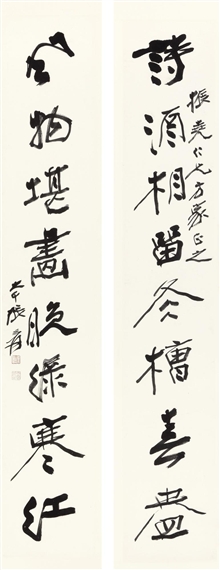 詩酒相留冬槽春盎
振堯仁兄方家正之
風物堪畫晚綠寒紅
大千張爰